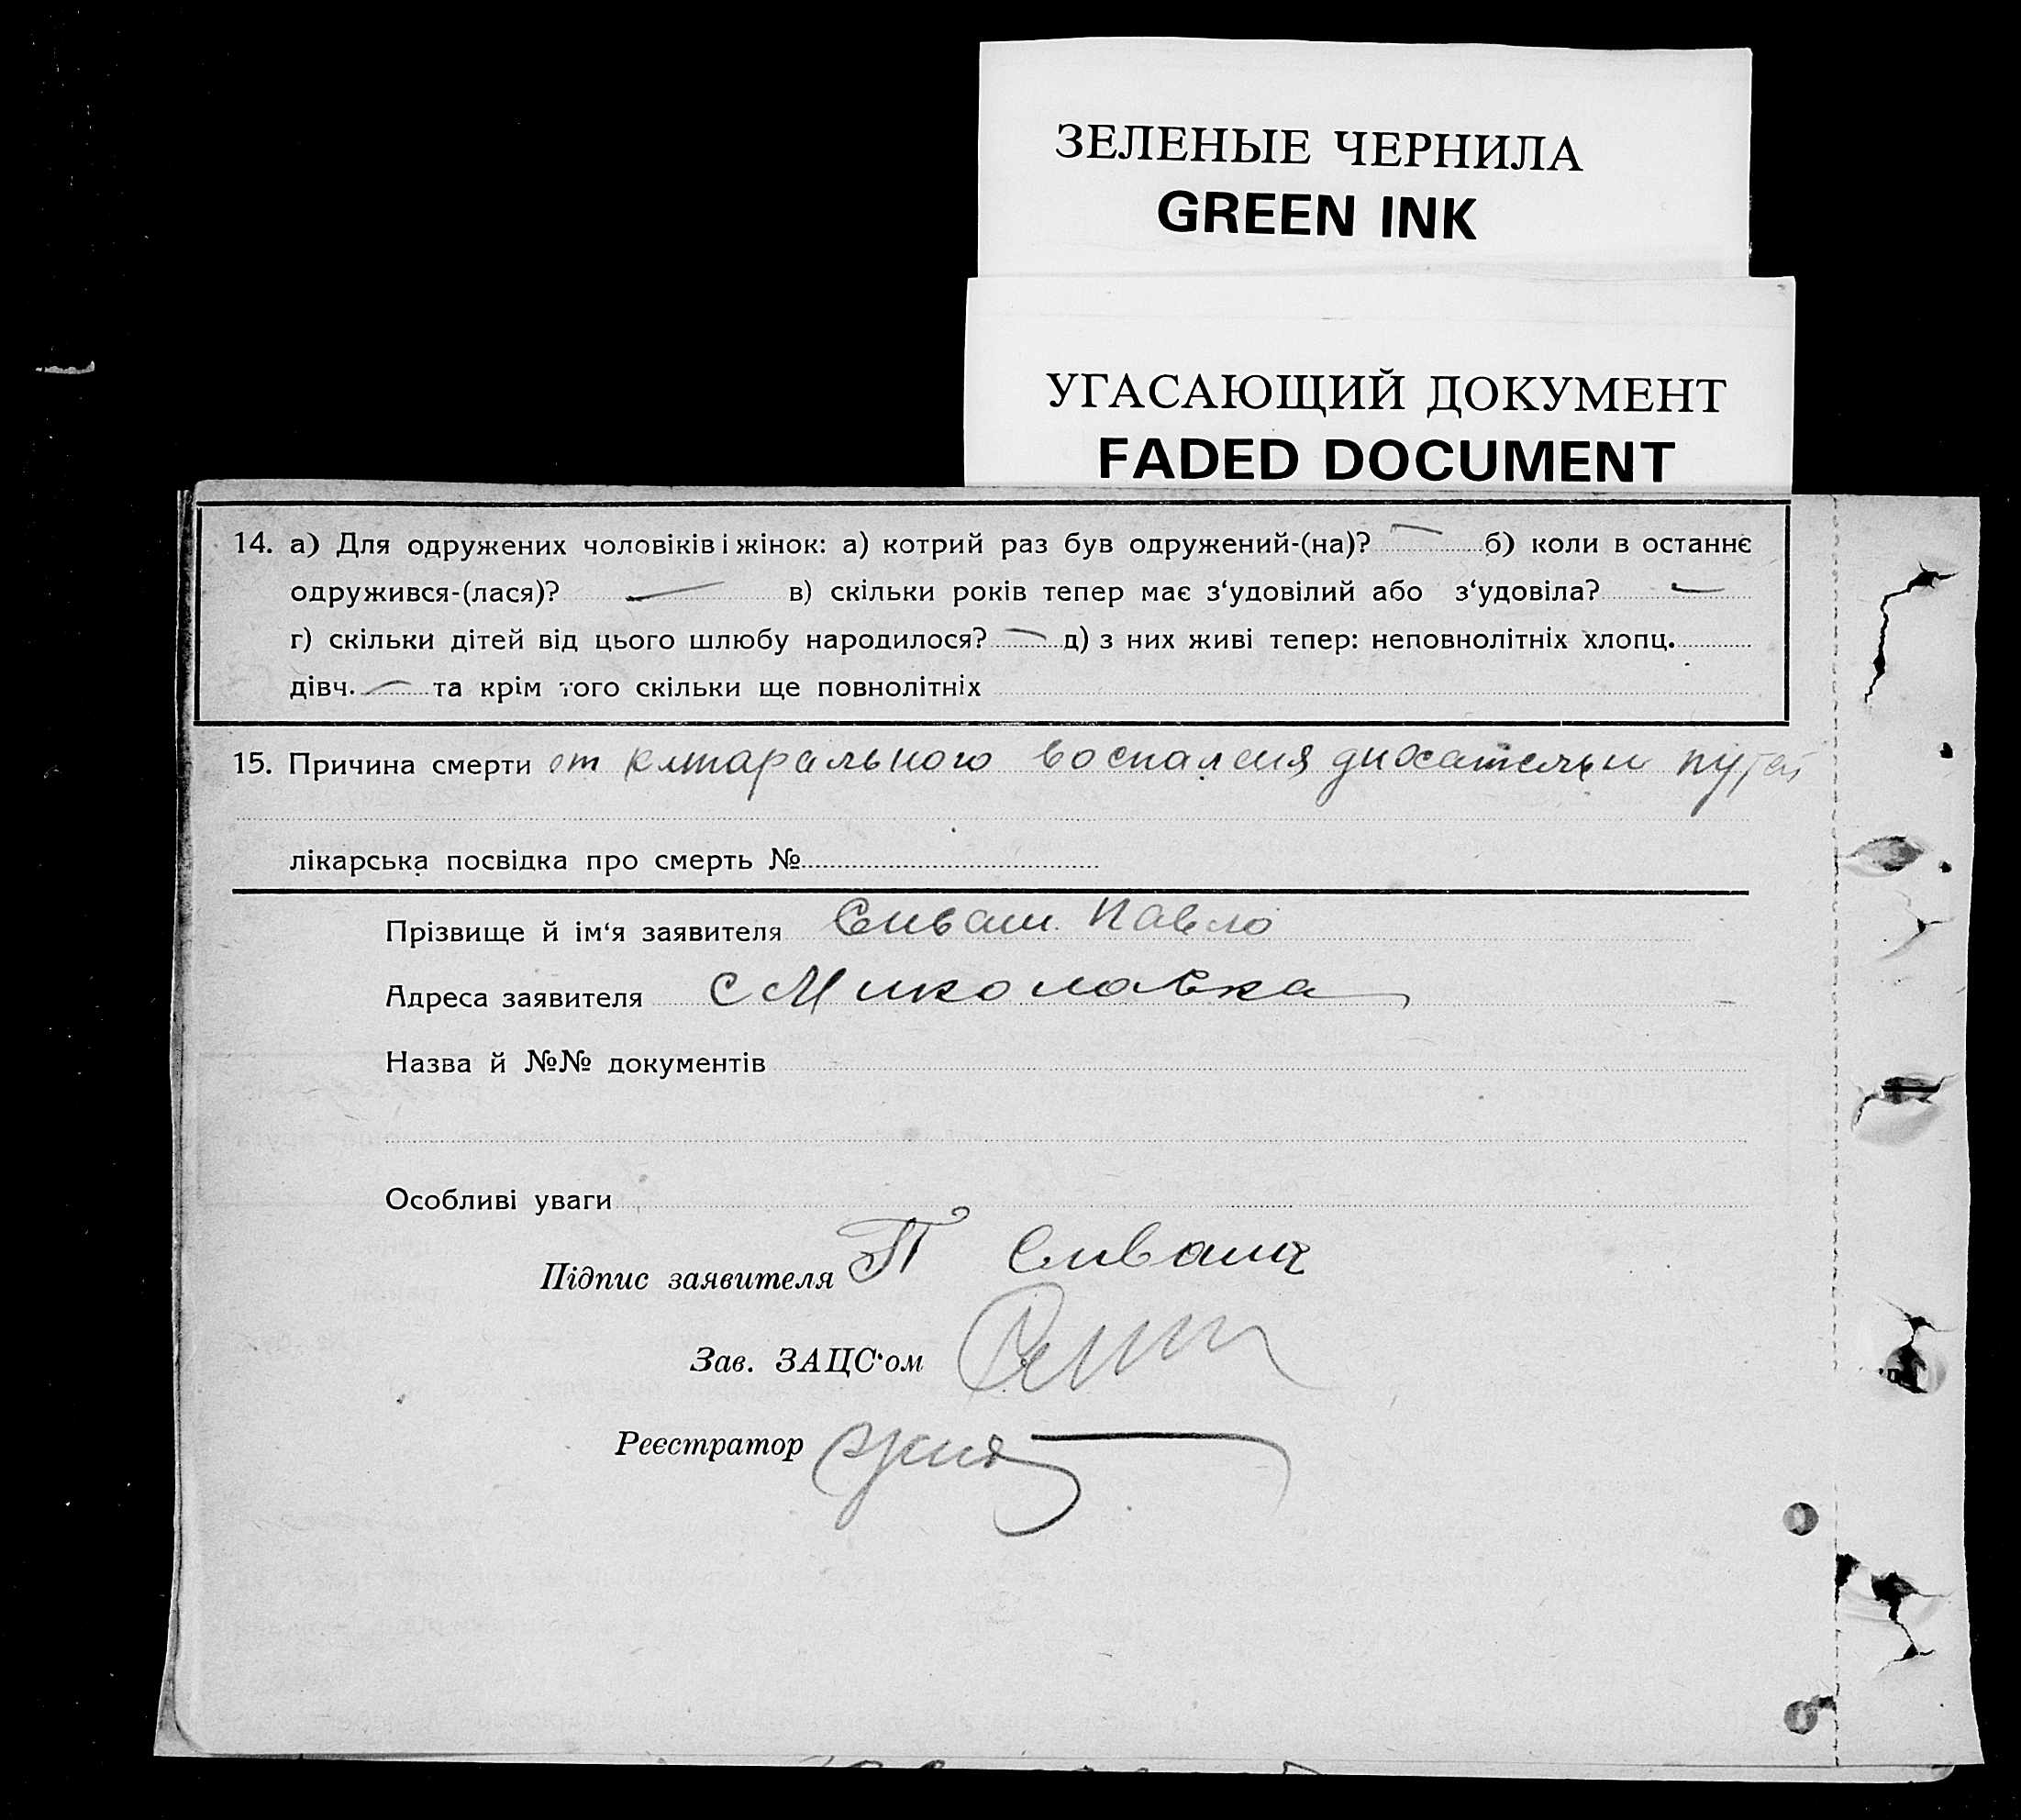 ЗЕЛЕНЫЕ ЧЕРНИЛА
GREEN INK
УГАСАЮЩИЙ ДОКУМЕНТ
FADED DOCUMENT
14. а) Для одружених чоловіків і жінок: а) котрий раз був одружений-(на)? — б) коли в останнє
одружився-(лася)? — в) скільки років тепер має з‘удовілий або з‘удовіла? —
г) скільки дітей від цього шлюбу народилося? — д) з них живі тепер: неповнолітніх хлопц.
дівч. — та крім того скільки ще повнолітніх
15. Причина смерти от катарального воспаления дихательн путей
лікарська посвідка про смерть №
Прізвище й ім‘я заявителя Сиваш Павло
Адреса заявителя с Миколавка
Назва й №№ документів
Особливі уваги
Підпис заявителя П Сиваш
Зав. ЗАЦС‘ом
Реєстратор